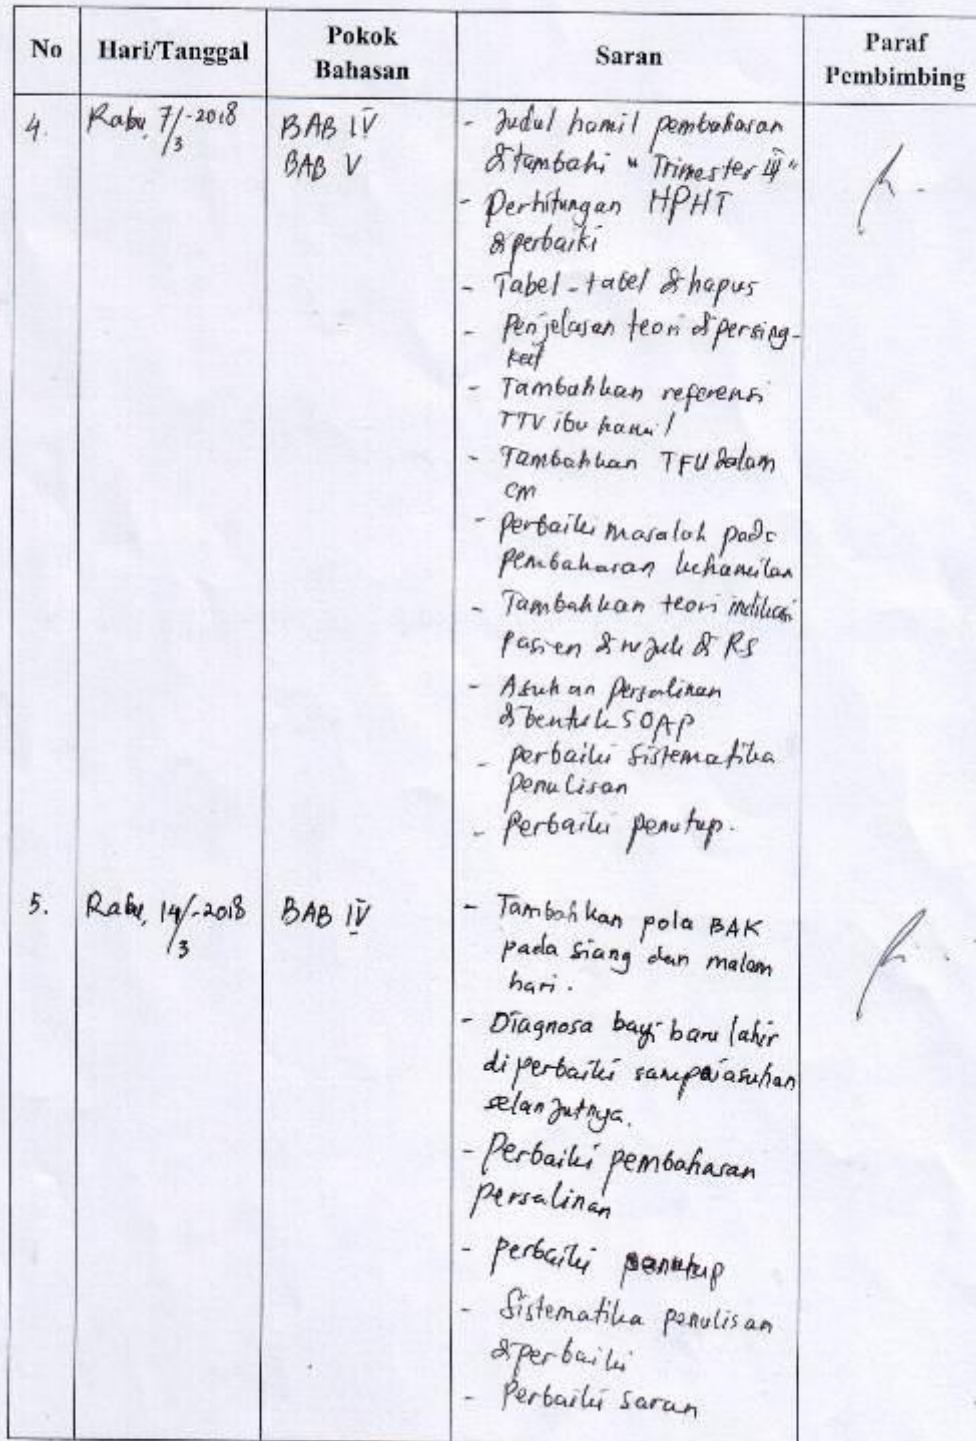 No Hari/Tanggal Pokok Bahasan Saran Paraf Pembimbing
4. Rabu, 7/3-2018 BAB IV
BAB V
- Judul hamil pembahasan
ditambahi "Trimester III"
- Perhitungan HPHT
diperbaiki
- Tabel-tabel dihapus
- Penjelasan teori dipersing-
kat
- Tambahkan referensi
TTV ibu hamil
- Tambahkan TFU dalam
cm
- perbaiki masalah pada
pembahasan kehamilan
- Tambahkan teori indikasi
pasien dirujuk di RS
- Asuhan Persalinan
dibentuk SOAP
- perbaiki sistematika
penulisan
- Perbaiki penutup.
5. Rabu, 14/3-2018 BAB IV
- Tambahkan pola BAK
pada siang dan malam
hari.
- Diagnosa bayi baru lahir
diperbaiki sampai asuhan
selanjutnya.
- Perbaiki pembahasan
persalinan
- perbaiki penutup
- Sistematika penulisan
diperbaiki
- Perbaiki saran